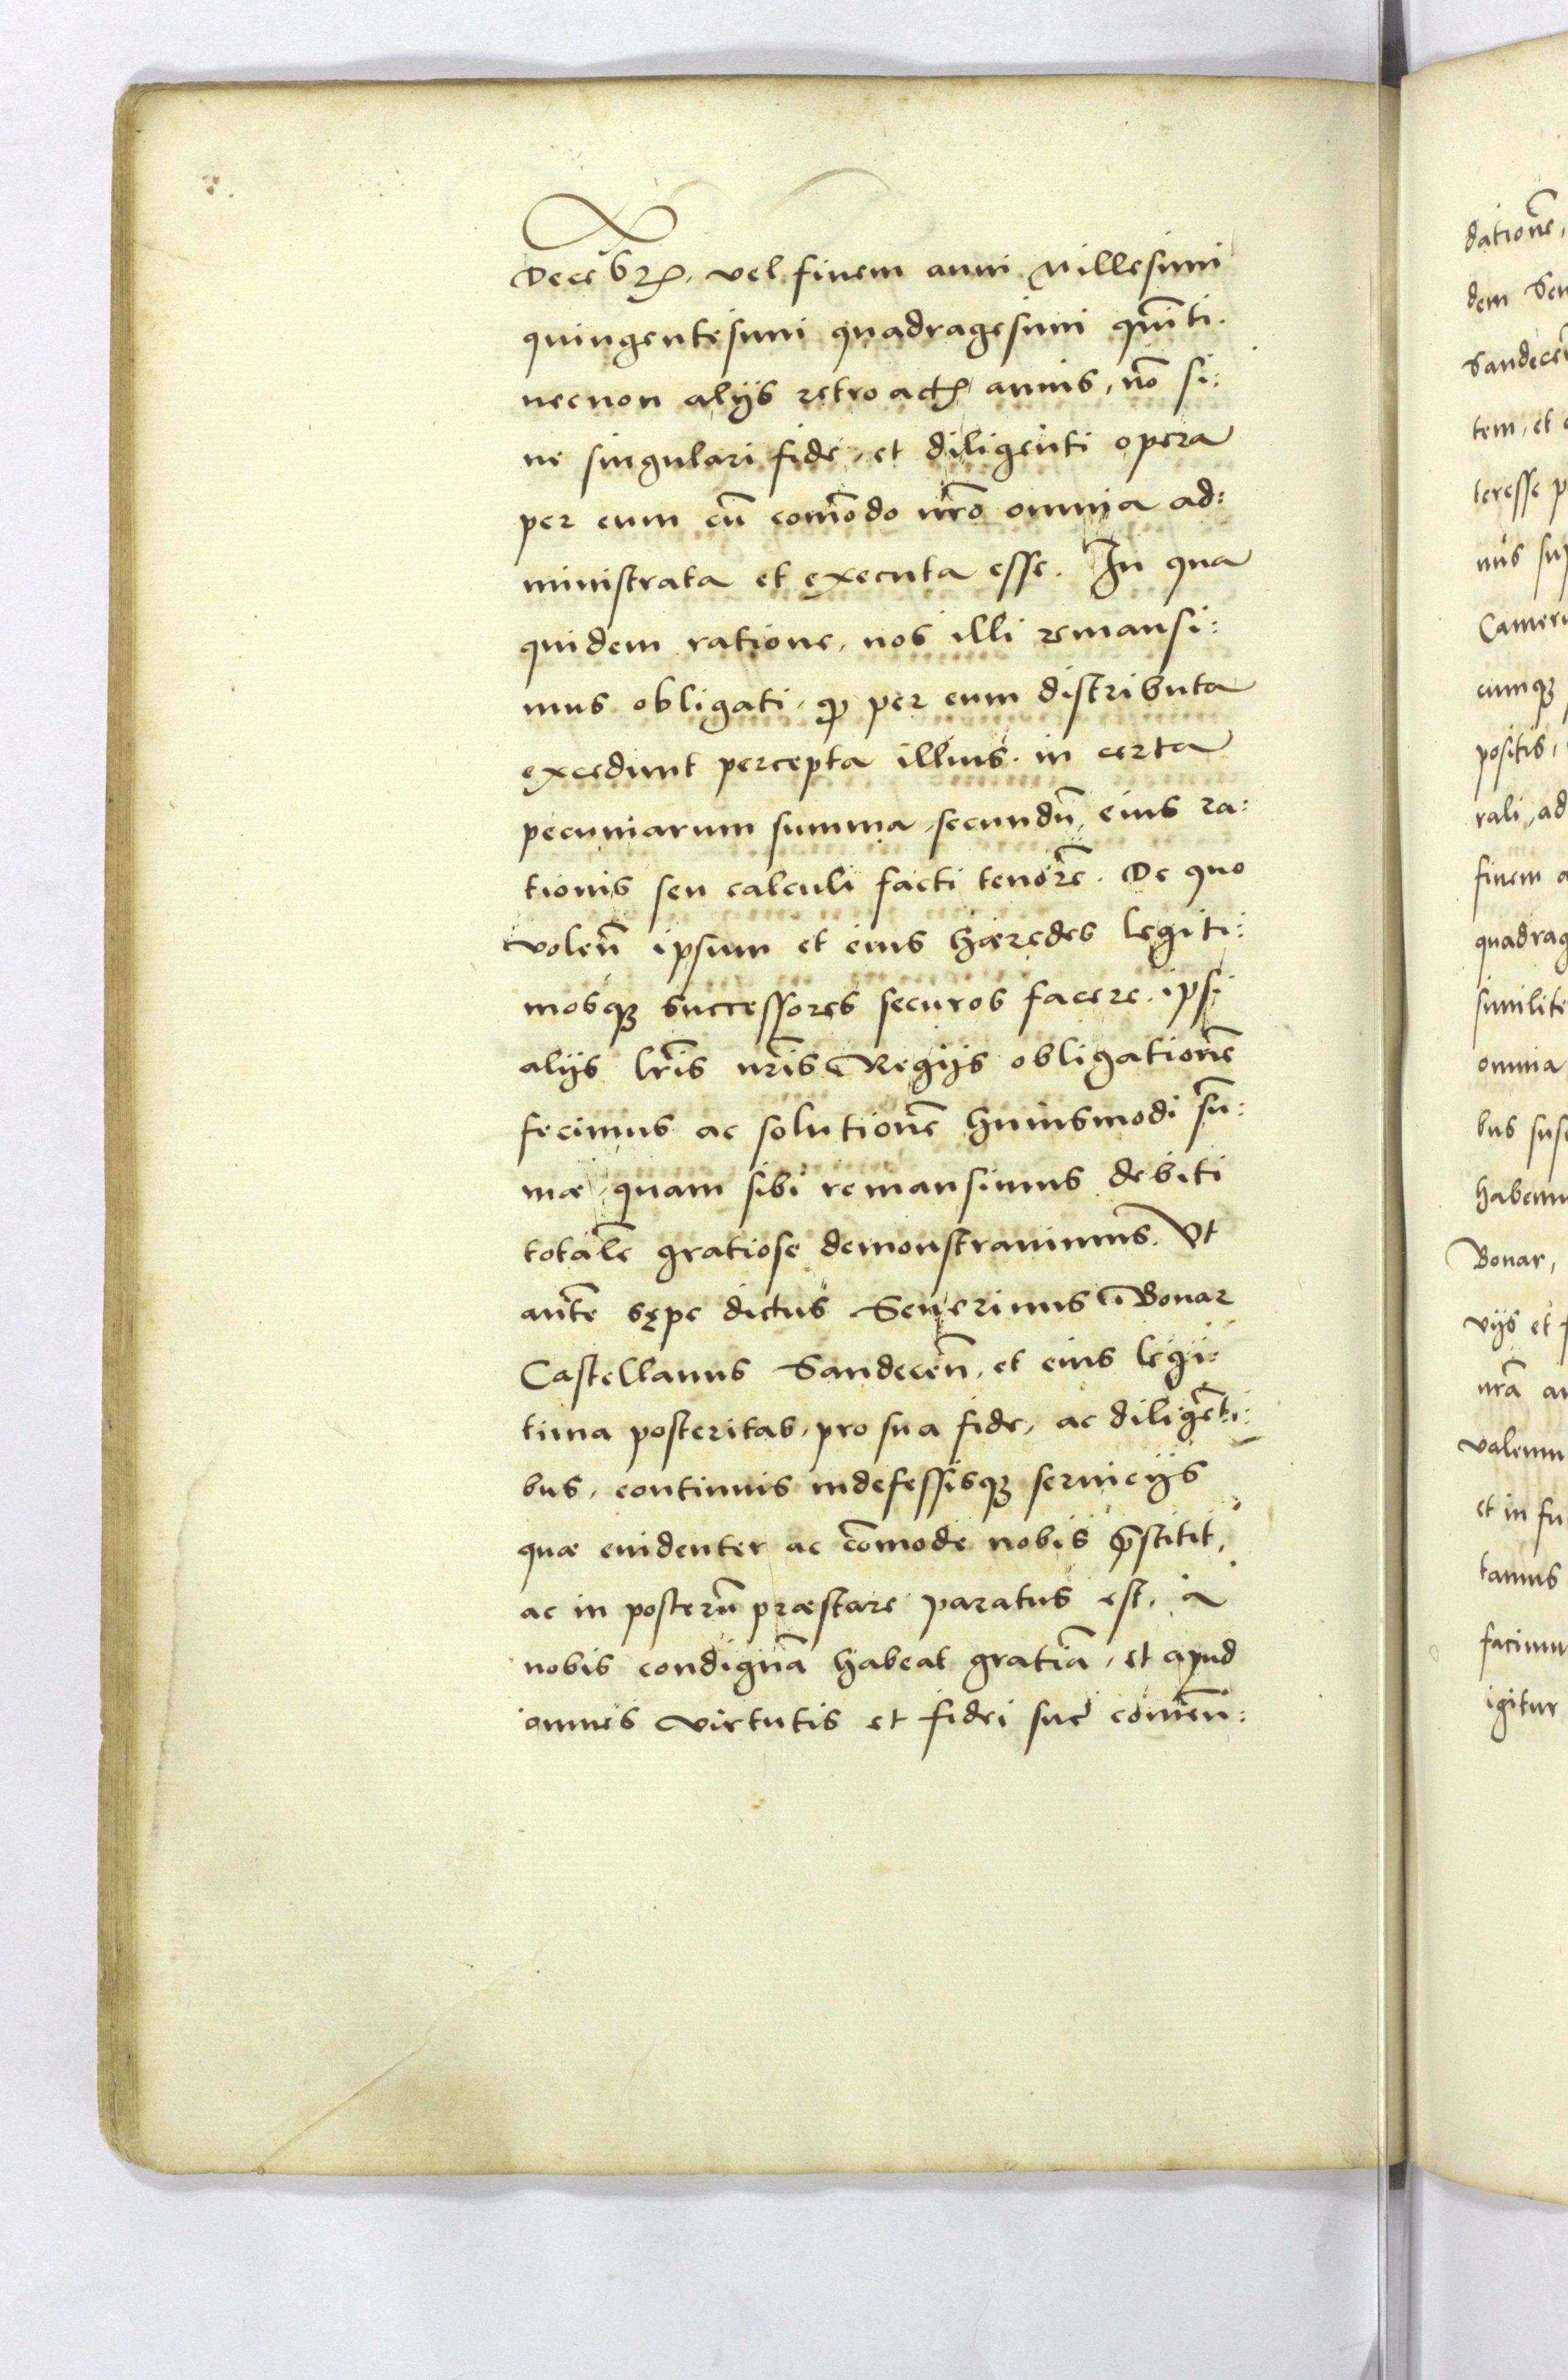 Decēbꝶ, vel finem anni Millesimi
quingentesimi quadragesimi quīti.
necnon alijs retroactꝭ annis, nō si:
ne singulari fide, et diligenti opera
per eum cū com̄odo nr̄o omnia ad:
ministrata et executa esse. In qua
quidem ratione, nos illi remansi:
mus obligati, ꝙ per eum distributa
excedunt percepta illius. in certa
pecuniarum summa, secundū eius ra:
tionis seu calculi facti tenorē. De quo
volen̄ ipsum et eius hæredes legiti:
mosqꝫ successores securos facere. ipsi
alijs lr̄is nr̄is Regijs obligationē
fecimus ac solutionē huiusmodi sū:
mæ, quam sibi remansimus debiti
totalē gratiose demonstrauimus. Vt
antē sępe dictus Seuerinus Bonar
Castellanus Sandecen̄, et eius legi:
tima posteritas, pro sua fide, ac diligēti:
bus, continuis indefessisqꝫ seruicijs
quæ euidenter ac cōmode nobis p̄stitit,
ac in posterū præstare paratus est, à
nobis condignā habeat gratiā, et apud
omnes virtutis et fidei suę com̄en:
dationē,
dem Seu
Sandecen̄
tem, et
teresse p
nus sup
Camer
cumqꝫ
positis,
rali, ad
finem a
quadrag
similite
omnia
bus sus
habemu
Bonar,
vijs et f
nrā au
valemu
et in fu
tamus
facimu
igitur